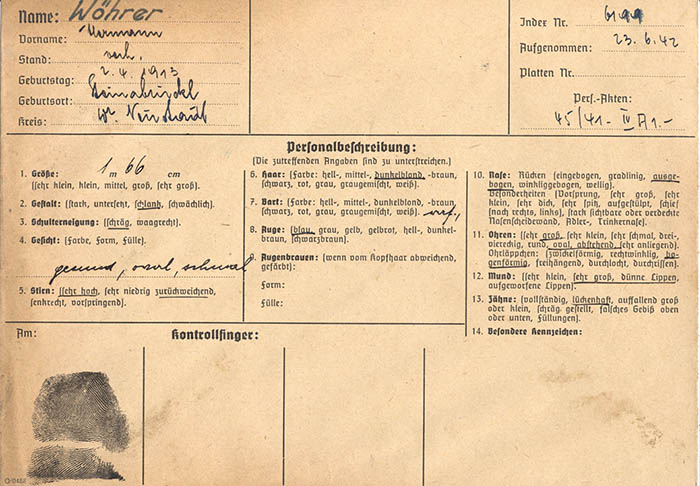 Name: Wöhrer
Vorname: Hermann
Stand: verh.
Geburtstag: 2.4.1913
Geburtsort: Steinabrückl
Kreis: Wr. Neustadt
Index Nr.
Aufgenommen: 23.6.42
Platten Nr.
Pers.-Akten:
45/41- IV A1.-
Personalbeschreibung:
(Die zutreffenden Angaben sind zu unterstreichen.)
1. Größe: 1 m 66 cm
(sehr klein, klein, mittel, groß, sehr groß).
2. Gestalt: (stark, untersetzt, schlank, schwächlich).
3. Schulterneigung: (schräg, waagrecht).
4. Gesicht: (Farbe, Form, Fülle).
gesund, oval, schmal
5. Stirn: (sehr hoch, sehr niedrig zurückweichend,
senkrecht, vorspringend).
6. Haar: (Farbe: hell-, mittel-, dunkelblond, -braun,
schwarz, rot, grau, graugemischt, weiß).
7. Bart: (Farbe: hell-, mittel-, dunkelblond, -braun,
schwarz, rot, grau, graugemischt, weiß).
8. Auge: (blau, grau, gelb, gelbrot, hell-, dunkel-
braun, schwarzbraun).
9. Augenbrauen: (wenn vom Kopfhaar abweichend,
gefärbt):
Form:
Fülle:
10. Nase: Rücken (eingebogen, gradlinig, ausge-
bogen, winkliggebogen, wellig).
Besonderheiten (Vorsprung, sehr groß, sehr
klein, sehr dick, sehr spitz, aufgestülpt, schief
(nach rechts, links), stark sichtbare oder verdeckte
Nasenscheidewand, Adler-, Trinkernase).
11. Ohren: (sehr groß, sehr klein, sehr schmal, drei-,
viereckig, rund, oval, abstehend, sehr anliegend).
Ohrläppchen: (zwickelförmig, rechtwinklig, bo-
genförmig, freihängend, durchlocht, durchrissen).
12. Mund: (sehr klein, sehr groß, dünne Lippen,
aufgeworfene Lippen).
13. Zähne: (vollständig, lückenhaft, auffallend groß
oder klein, schräg gestellt, falsches Gebiß oben
oder unten, Füllungen).
14. Besondere Kennzeichen:
Am:
Kontrollfinger: